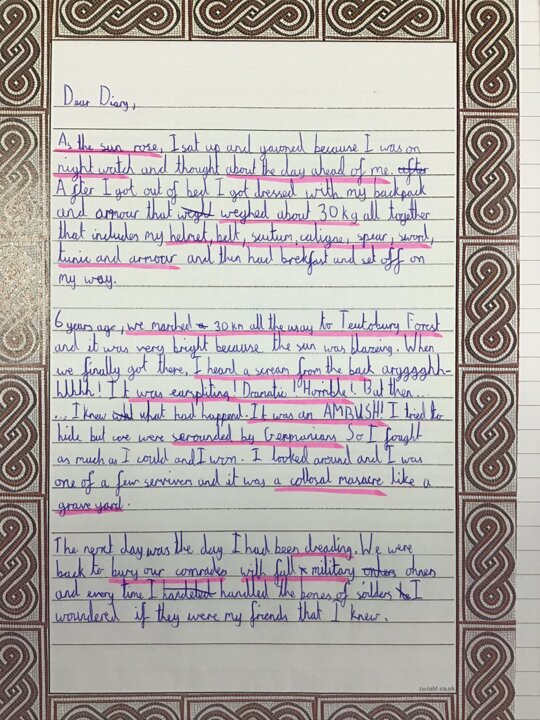 Dear Diary,
As the sun rose, I sat up and yawned because I was on
night watch and thought about the day ahead of me. after
After I got out of bed I got dressed with my backpack
and armour that weight weghed about 30 kg all together
that includes my helmet, belt, scutum, caligne, spear, sword,
tunic and armour and then had brekfast and set off on
my way.
6 years ago, we marched 30 km all the way to Teutoburg Forest
and it was very bright because the sun was blazeing. When
we finally got there, I heard a scream from the back aryggghh-
hhhhh! It was earspliting! Dramatic! Horrible!. But then...
... I knew what what had happend. It was an AMBUSH! I tried to
hide but we were serounded by Germanians So I fought
as much as I could and I won. I looked around and I was
one of a few servivers and it was a collosal masacre like a
grave yard.
The next day was the day I had been dreading. We were
back to bury our comrades with full military others oners
and every time I handeled handled the bones of solders I
woundered if they were my friends that I knew.
twinkl.co.uk